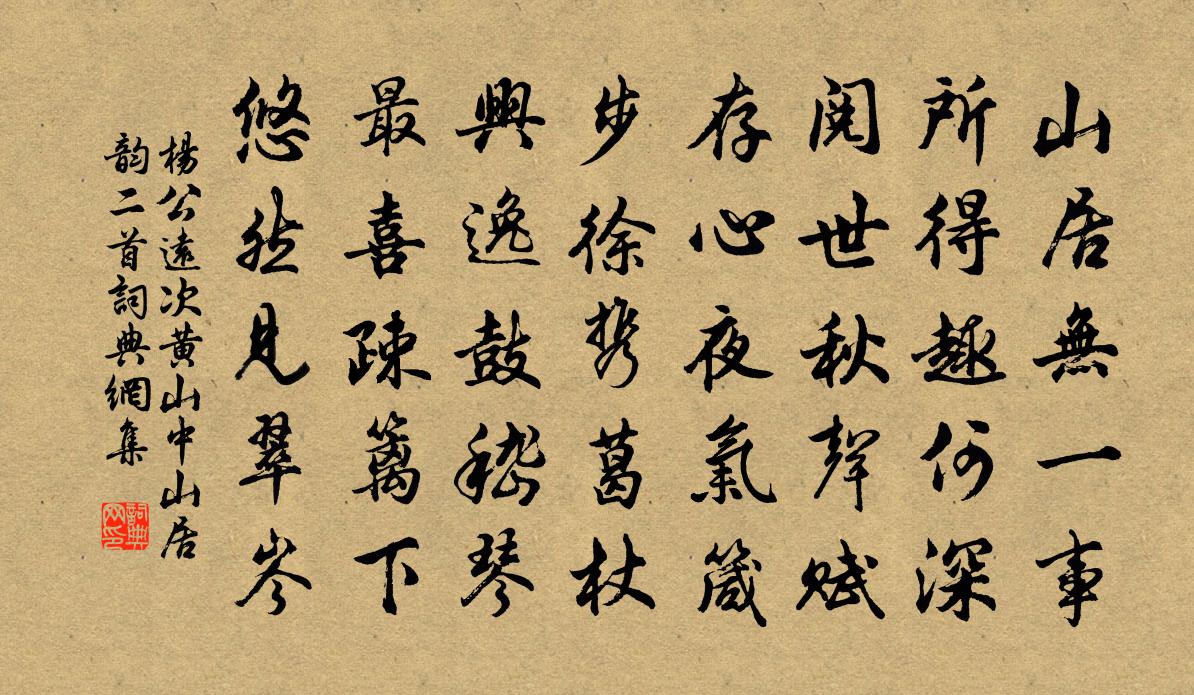 山居無一事
所得趣何深
閱世秋聲賦
存心夜氣箴
步徐携葛杖
興逸鼓嵇琴
最喜疎籬下
悠然見翠岑
楊公遠次黃山中山居
韵二首詞典網集
詞典網印